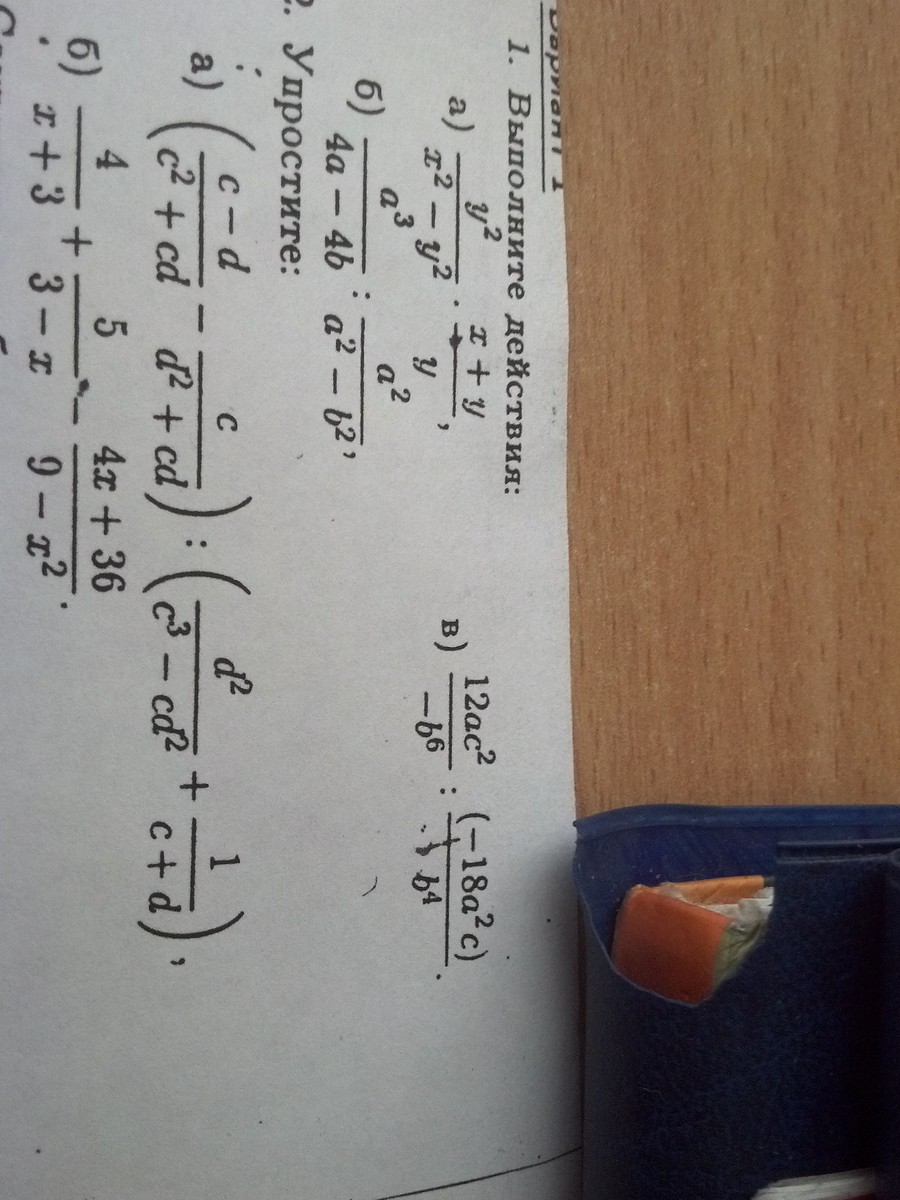 Вариант 1
1. Выполните действия:
а) y²/(x² − y²) · (x + y)/y,
в) 12ac²/(−b⁶) : (−18a²c)/b⁴.
б) a³/(4a − 4b) : a²/(a² − b²),
2. Упростите:
а) ((c − d)/(c² + cd) − c/(d² + cd)) : (d²/(c³ − cd²) + 1/(c + d)),
б) 4/(x + 3) + 5/(3 − x) − (4x + 36)/(9 − x²).